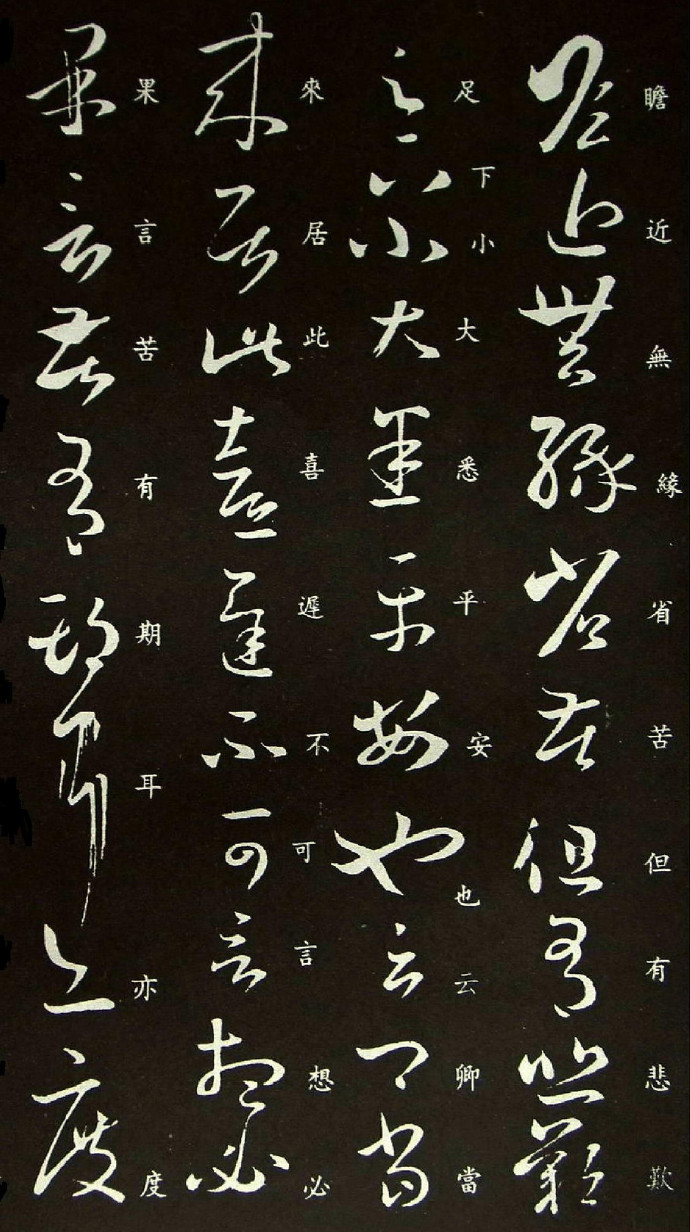 瞻近無緣省苦但有悲歎
足下小大悉平安也云卿當
來居此喜遲不可言想必
果言苦有期耳亦度